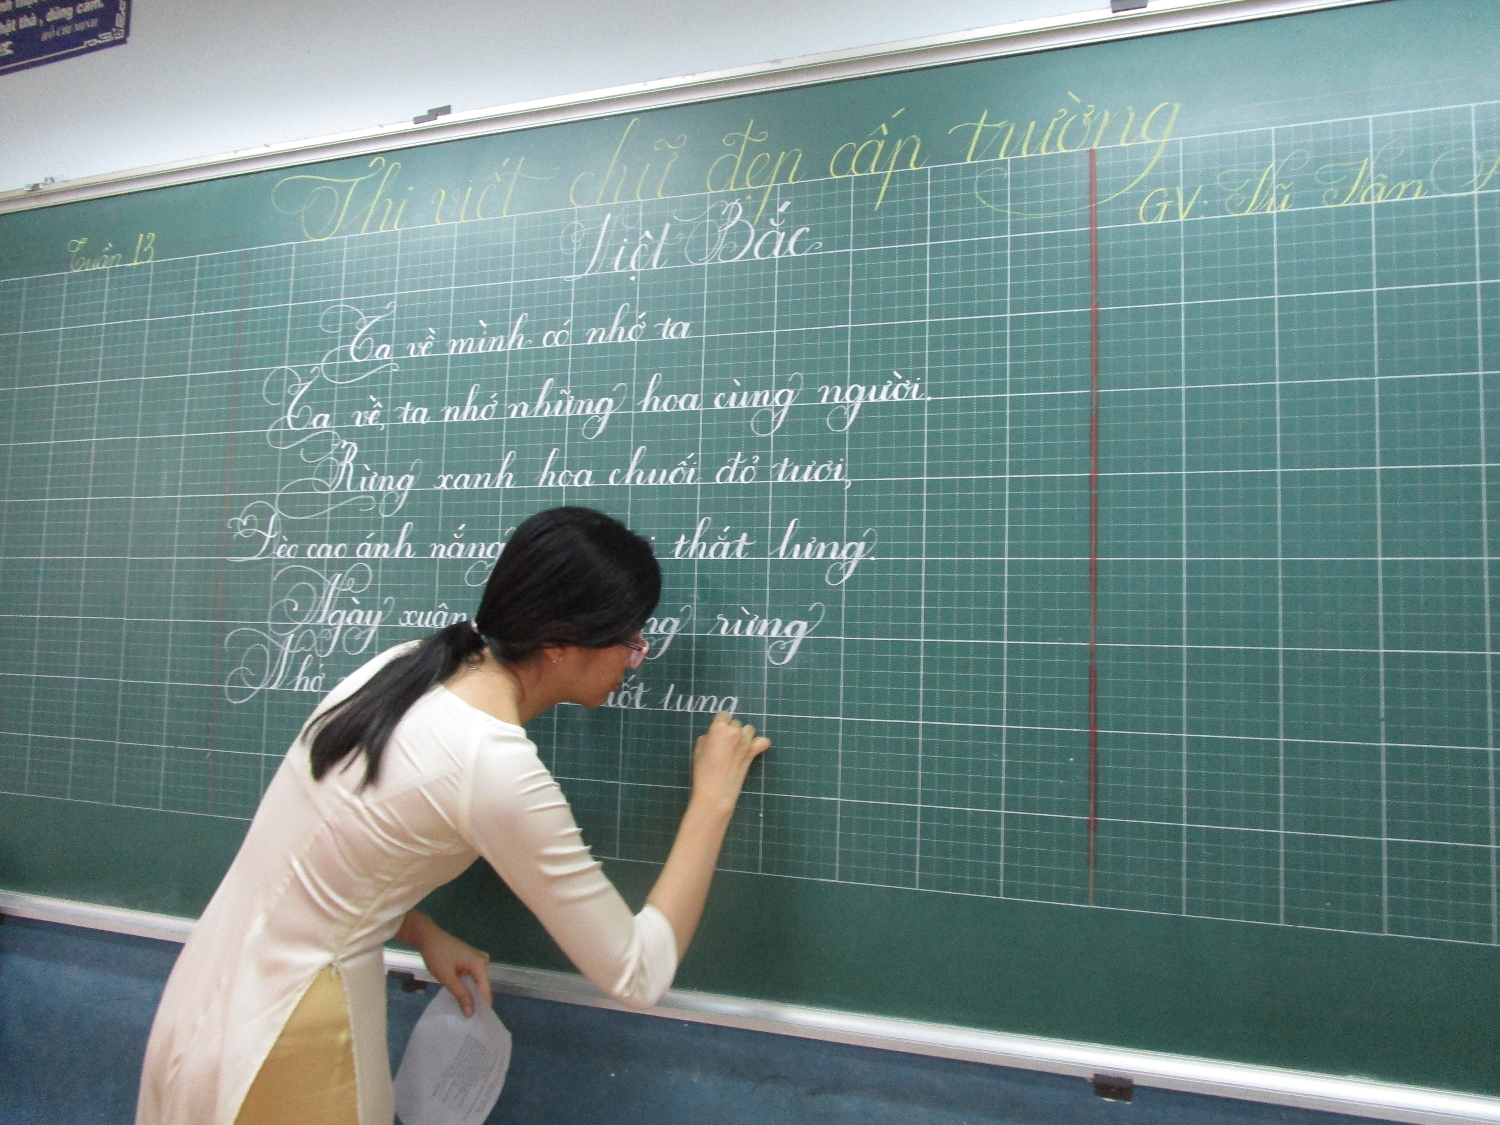 thật thà, dũng cảm.
HỒ CHÍ MINH
Thi viết chữ đẹp cấp trường
Tuần 13
GV: Vũ Tân
Việt Bắc
Ta về mình có nhớ ta
Ta về, ta nhớ những hoa cùng người.
Rừng xanh hoa chuối đỏ tươi,
Đèo cao ánh nắng thắt lưng.
Ngày xuân rừng
Nhớ lung